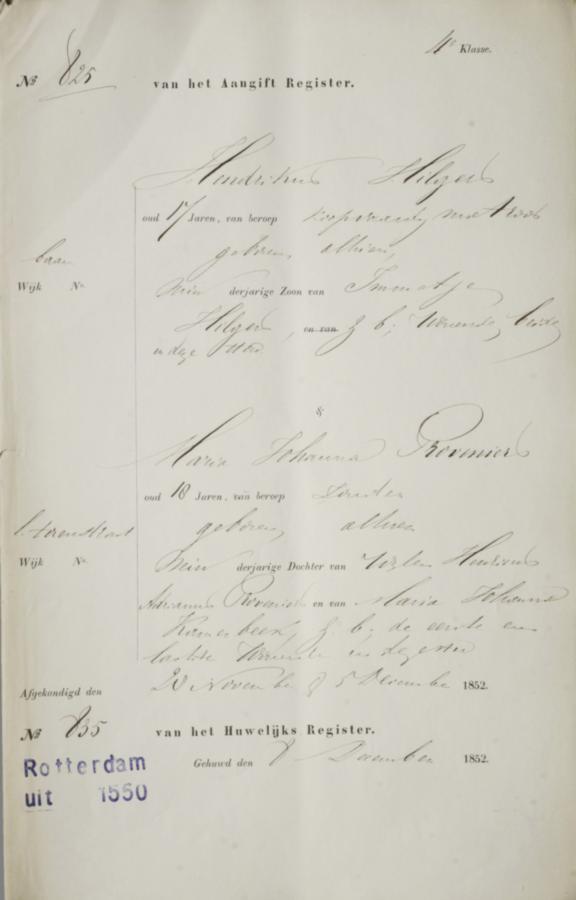 4e Klasse.
No 825 van het Aangift Register.
Hendrikus Hilgers
oud 17 Jaren, van beroep koopvaardy matroos
geboren alhier,
baan
Wijk No
Min derjarige Zoon van Immetje
Hilgers, en van z. b; wonende beide
in deze stad.
&
Maria Johanna Provenier
oud 18 Jaren, van beroep zonder
geboren alhier
Torenstraat
Wijk No
Min derjarige Dochter van wylen
Adrianus Provenier en van Maria Johanna
z. b; de eerste en
laatste wonende in deze stad
Afgekondigd den 28 November & 5 December 1852.
No 835 van het Huwelijks Register.
Rotterdam
Gehuwd den 8 December 1852.
uit 1550